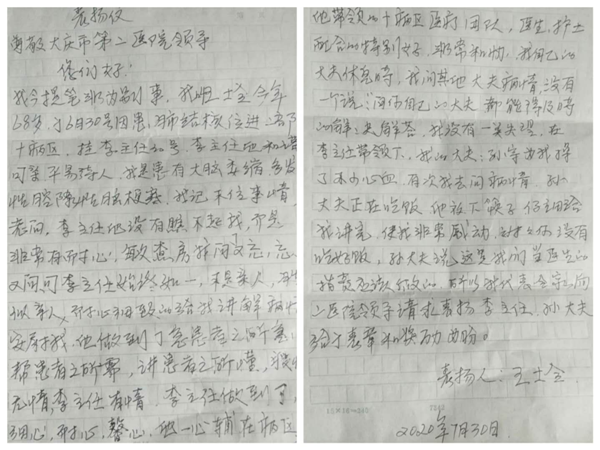 表扬信
尊敬大庆市第二医院领导
您们好!
我今提笔非为别事,我
68岁,于6月30号因患肺结核住进二院
十病区,挂李主任的号。李主任和蔼
可亲平易待人,我是患有大脑萎缩多发
性腔隙性脑梗塞,我记不住事情,
老问,李主任他没有烦,不
非常有耐心,每次查房我问
又问可李主任始终如一,不是亲人,胜
似亲人,耐心细致的给我讲解病情
安抚我,他做到了急患者之所急
帮患者之所需,讲患者之所懂,疾病
无情,李主任有情,李主任做到了
细心,耐心,馨心,他一心铺在病区
他带领的十病区医疗团队,医生护士
配合的特别好,非常和协,我自己的
大夫休息时,我问其他大夫病情,没有
一个说:问你自己的大夫都能得及时
的解决解答,我没有一点失望,在
李主任带领下,我的大夫:孙 为我操
了不少心血,有次我去问病情,孙
大夫正在吃饭,他放下筷子仔细给
我讲完,使我非常感动,
吃好饭,孙大夫说:这是我们当医生的
指责应该做的。所以我代表全家向
二医院领导请求表扬李主任,孙大夫
给于表章和奖励为盼。
表扬人:王士全
2020年7月30日.